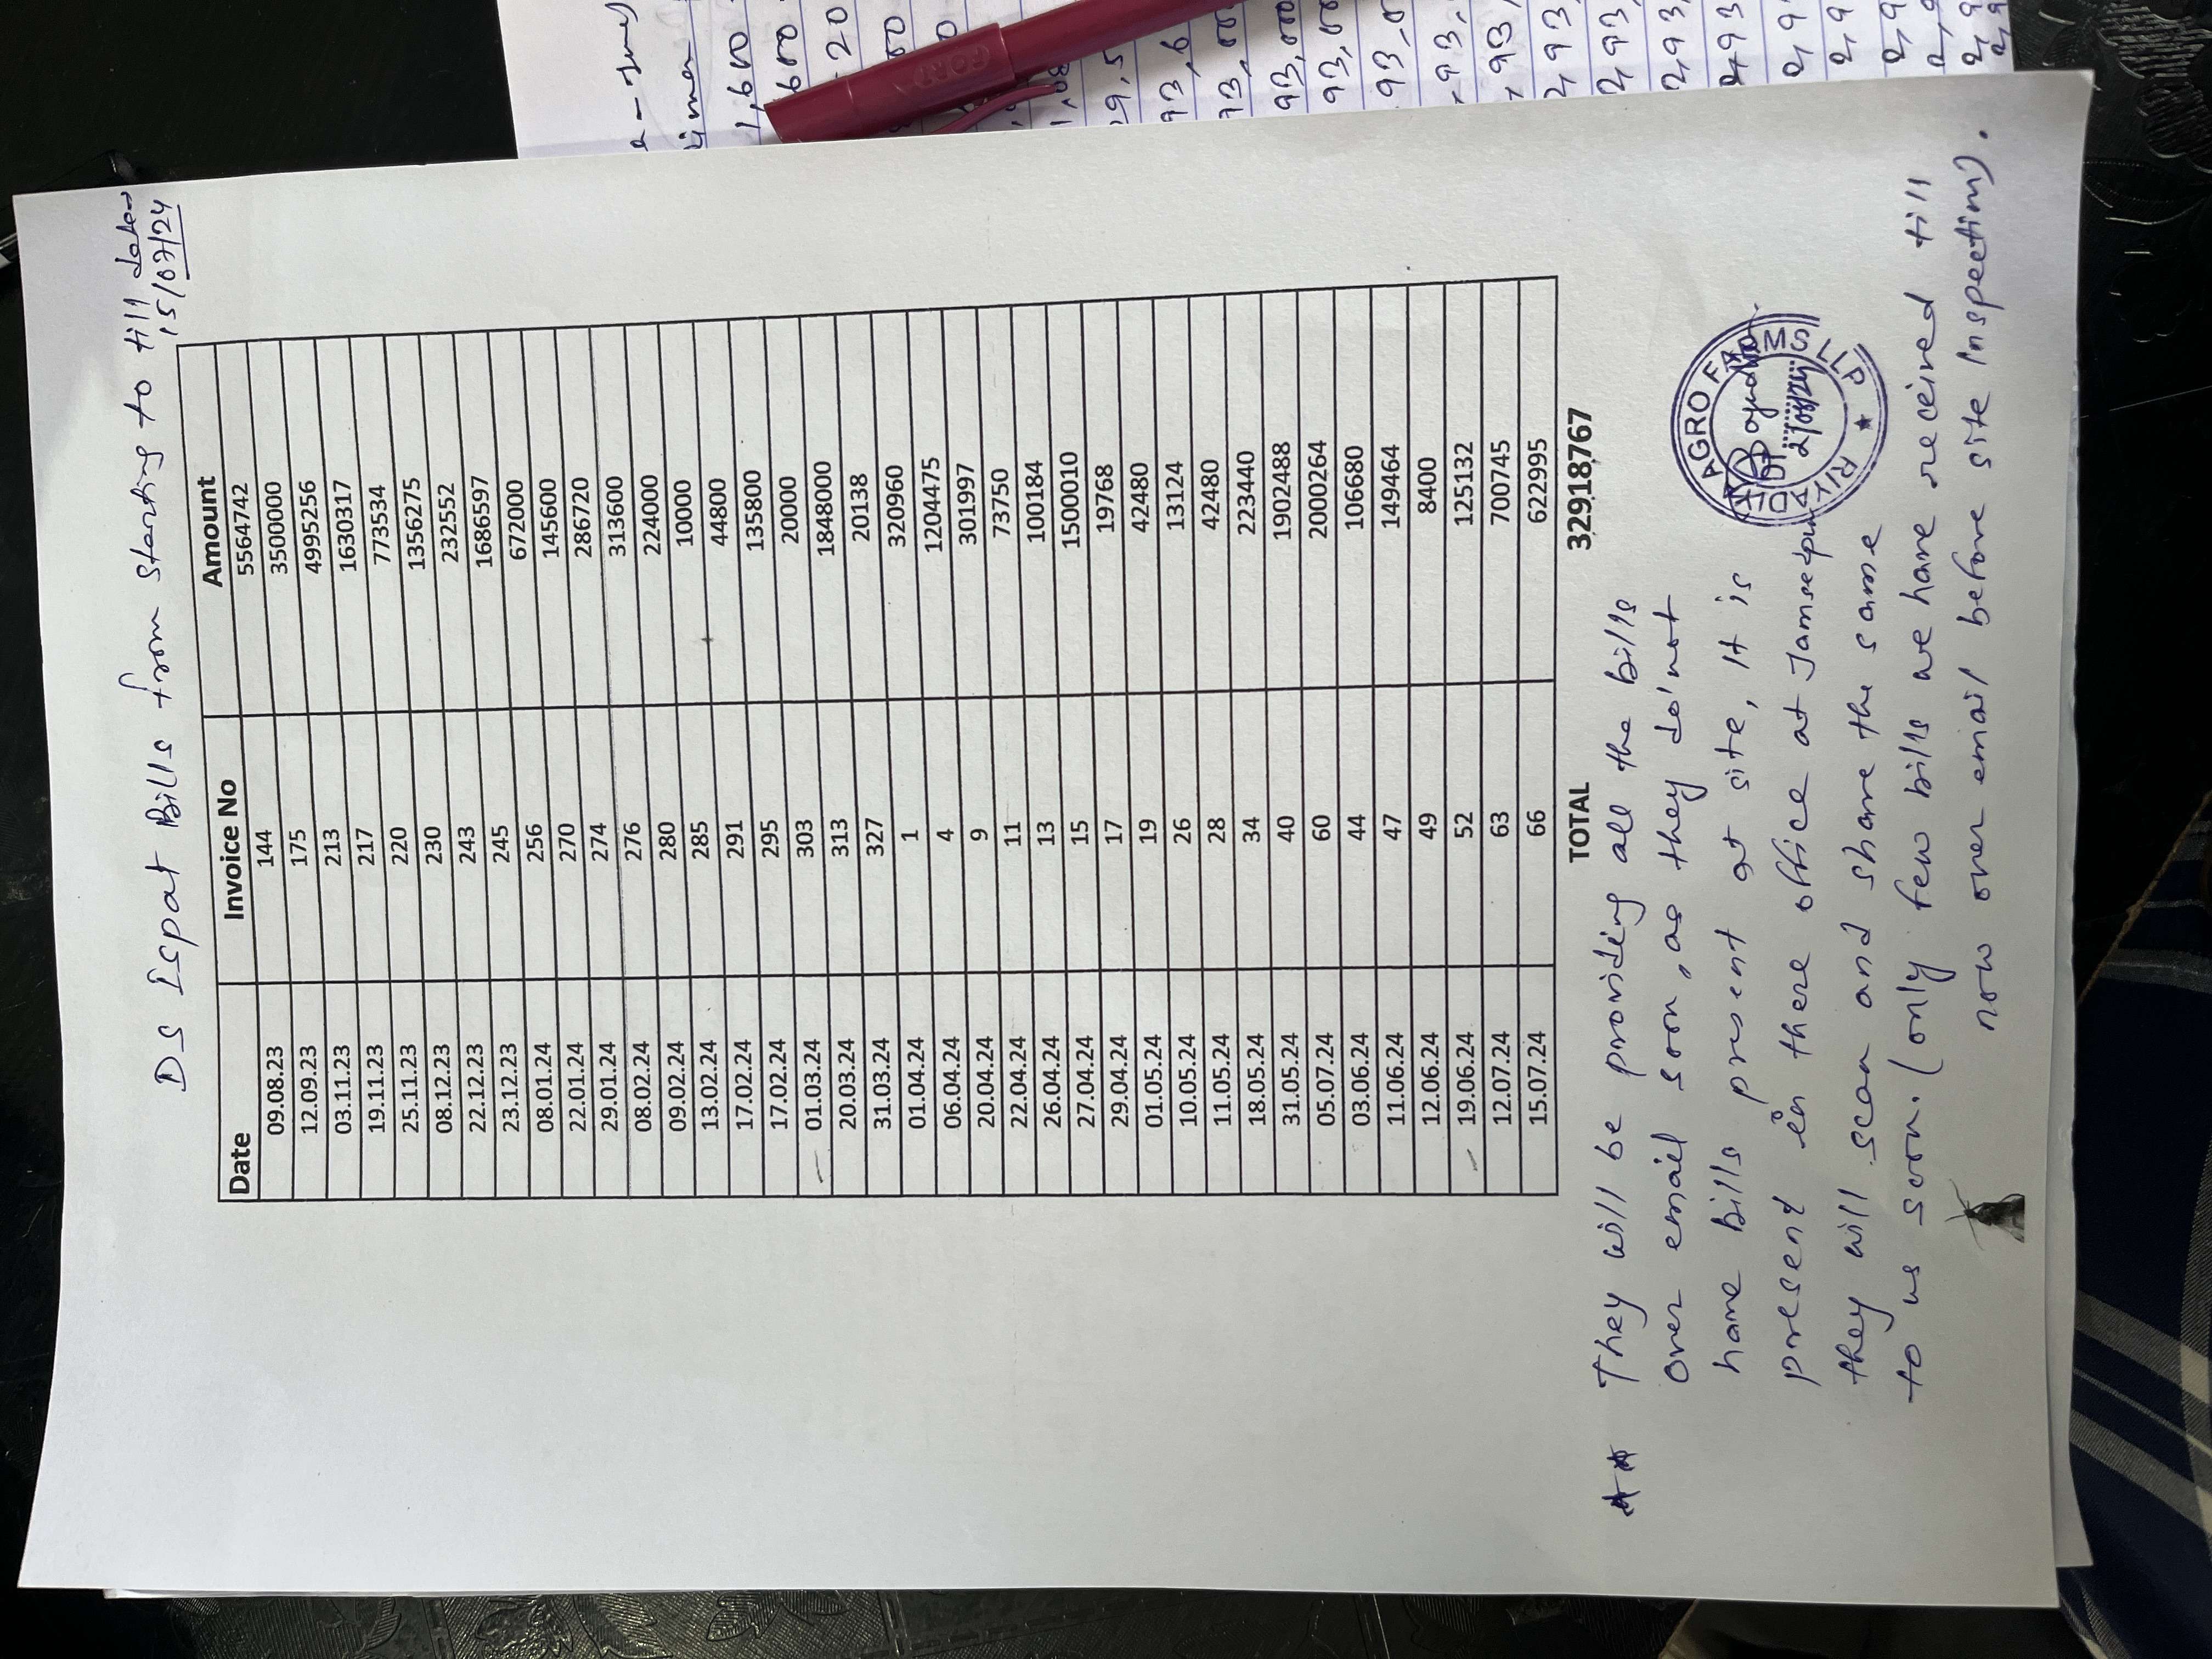 DS Ispat Bills from starting to till date
15/07/24
Date Invoice No Amount
09.08.23 144 5564742
12.09.23 175 3500000
03.11.23 213 4995256
19.11.23 217 1630317
25.11.23 220 773534
08.12.23 230 1356275
22.12.23 243 232552
23.12.23 245 1686597
08.01.24 256 672000
22.01.24 270 145600
29.01.24 274 286720
08.02.24 276 313600
09.02.24 280 224000
13.02.24 285 10000
17.02.24 291 44800
17.02.24 295 135800
01.03.24 303 200000
20.03.24 313 1848000
31.03.24 327 20138
01.04.24 1 320960
06.04.24 4 1204475
20.04.24 9 301997
22.04.24 11 73750
26.04.24 13 100184
27.04.24 15 1500010
29.04.24 17 19768
01.05.24 19 42480
10.05.24 26 13124
11.05.24 28 42480
18.05.24 34 223440
31.05.24 40 1902488
05.07.24 60 2000264
03.06.24 44 106680
11.06.24 47 149464
12.06.24 49 8400
19.06.24 52 125132
12.07.24 63 700745
15.07.24 66 622995
TOTAL 32918767
** They will be providing all the bills
over email soon, as they do'not
have bills present at site, it is
present in there office at Jamsedpur
they will scan and share the same
to us soon. (only few bills we have received till
now over email before site inspection).
RIYADITYA AGRO FARMS LLP